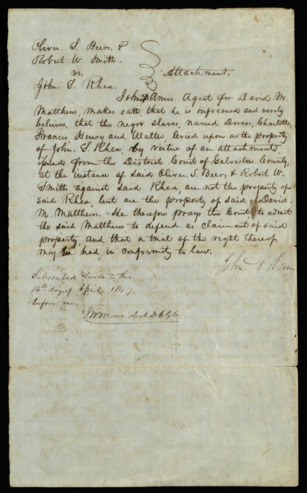 Oliver S. Beers &
Robert W. Smith
vs. Attachment.
John S. Rhea.
John Amis. Agent for David M.
Matthews. makes oath that he is informed and verily
believes, that the negro slaves, named Dorcas, Charlotte,
Francis Henry and Walter, levied upon as the property
of John. S. Rhea, by virtue of an attachment
issued from the District Court of Galveston County,
at the instance of said Oliver. S. Beers, & Robert W.
Smith against said Rhea, are not the property of
said Rhea, but are the property of said David.
M. Matthews. He therefore prays the Court to admit
the said Matthews to defend as claimant of said
property, and that a trial of the right thereof
may be had in conformity to law.
John
Subscribed & sworn to this
16th day of April 1847,
before me.
clerk